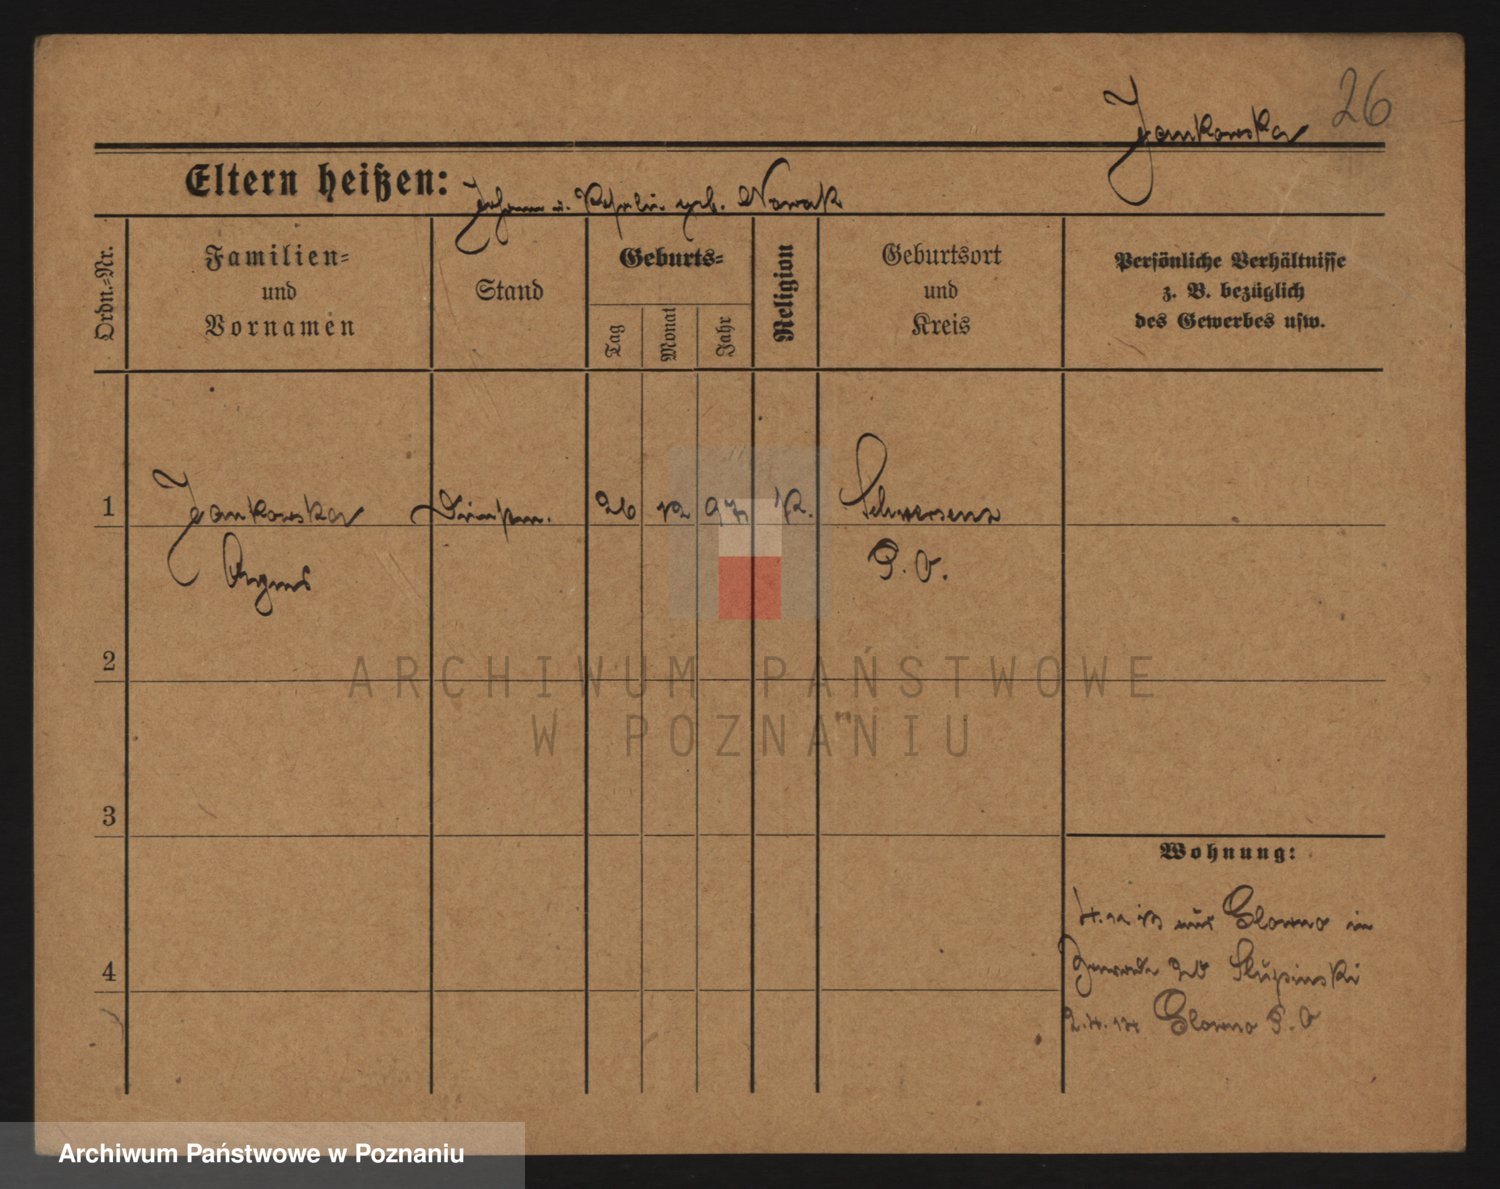 26
Jankowska
Eltern heißen: Johann u. geb. Nowak
Ordn.-Nr.
Familien-
und
Vornamen
Stand
Geburts-
Tag
Monat
Jahr
Religion
Geburtsort
und
Kreis
Persönliche Verhältnisse
z. B. bezüglich
des Gewerbes usw.
1 Jankowska 26 12 97 K. Schwersenz
Agnes P. O.
2
ARCHIWUM PAŃSTWOWE
W POZNANIU
3
Wohnung:
4. 12 13 aus Glowno in
4
Slupinski
2.4.14 Glowno P. O
Archiwum Państwowe w Poznaniu